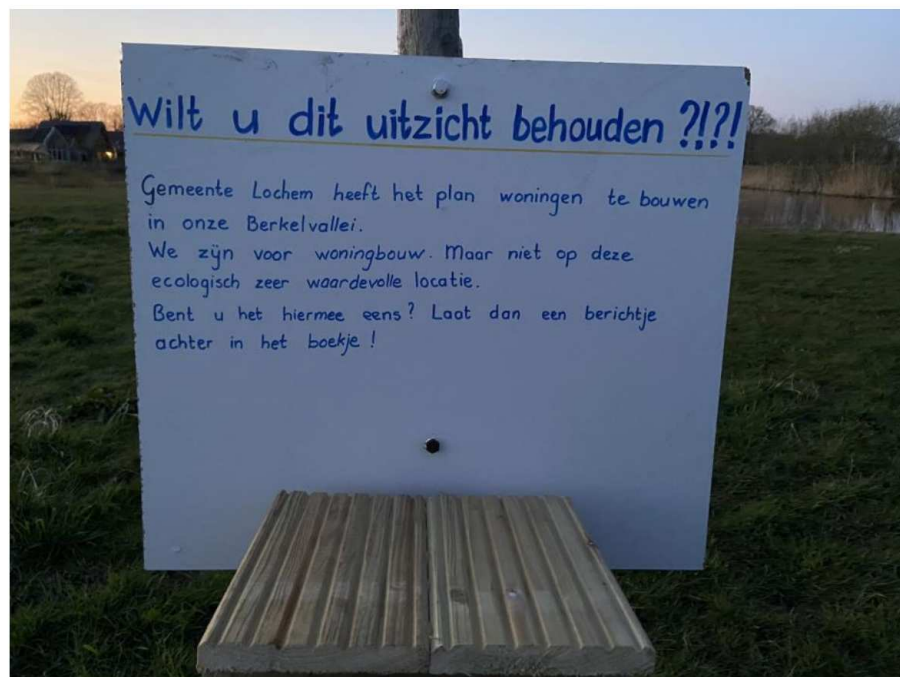 Wilt u dit uitzicht behouden ?!?!
Gemeente Lochem heeft het plan woningen te bouwen
in onze Berkelvallei.
We zijn voor woningbouw. Maar niet op deze
ecologisch zeer waardevolle locatie.
Bent u het hiermee eens? Laat dan een berichtje
achter in het boekje !